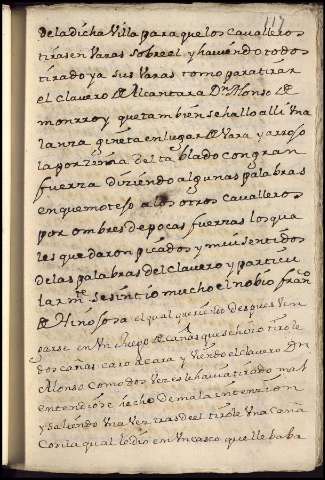 117
De la dicha Villa para que los Cavalleros
tirasen Varas sobre el y haviendo todos
tirado ya sus Varas tomo para tirar
el clavero de Alcantara Dn Alonso de
monrroy que tambien se hallo alli Vna
lanza gineta en lugar de Vara y arrojo
la por zima del tablado con gran
fuerza diziendo algunas palabras
en que moteso a los otros Cavalleros
por ombres de pocas fuerzas los qua
les quedaron picados y mui sentidos
de las palabras del clavero y particu
larmte se sintio mucho el nobio fran
de Hinojosa el qual queriendo despues Ven
garse en Vn Juego de cañas que se hizo tirole
dos cañas cara a cara y Viendo el clavero Dn
Alonso Como dos Vezes le havia tirado mal
entendiose hecho de mala intenzion
y saliendo Vna Vez tras del tirole Vna Caña
Con la qual le dio en Vn casco que llebaba